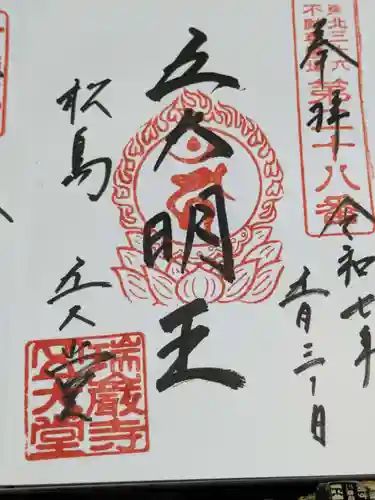 奉拝
東北三十六
不動尊霊場
第二十八番
令和七年
五月三十一日
五大明王
松島
五大堂
瑞巌寺
五大堂